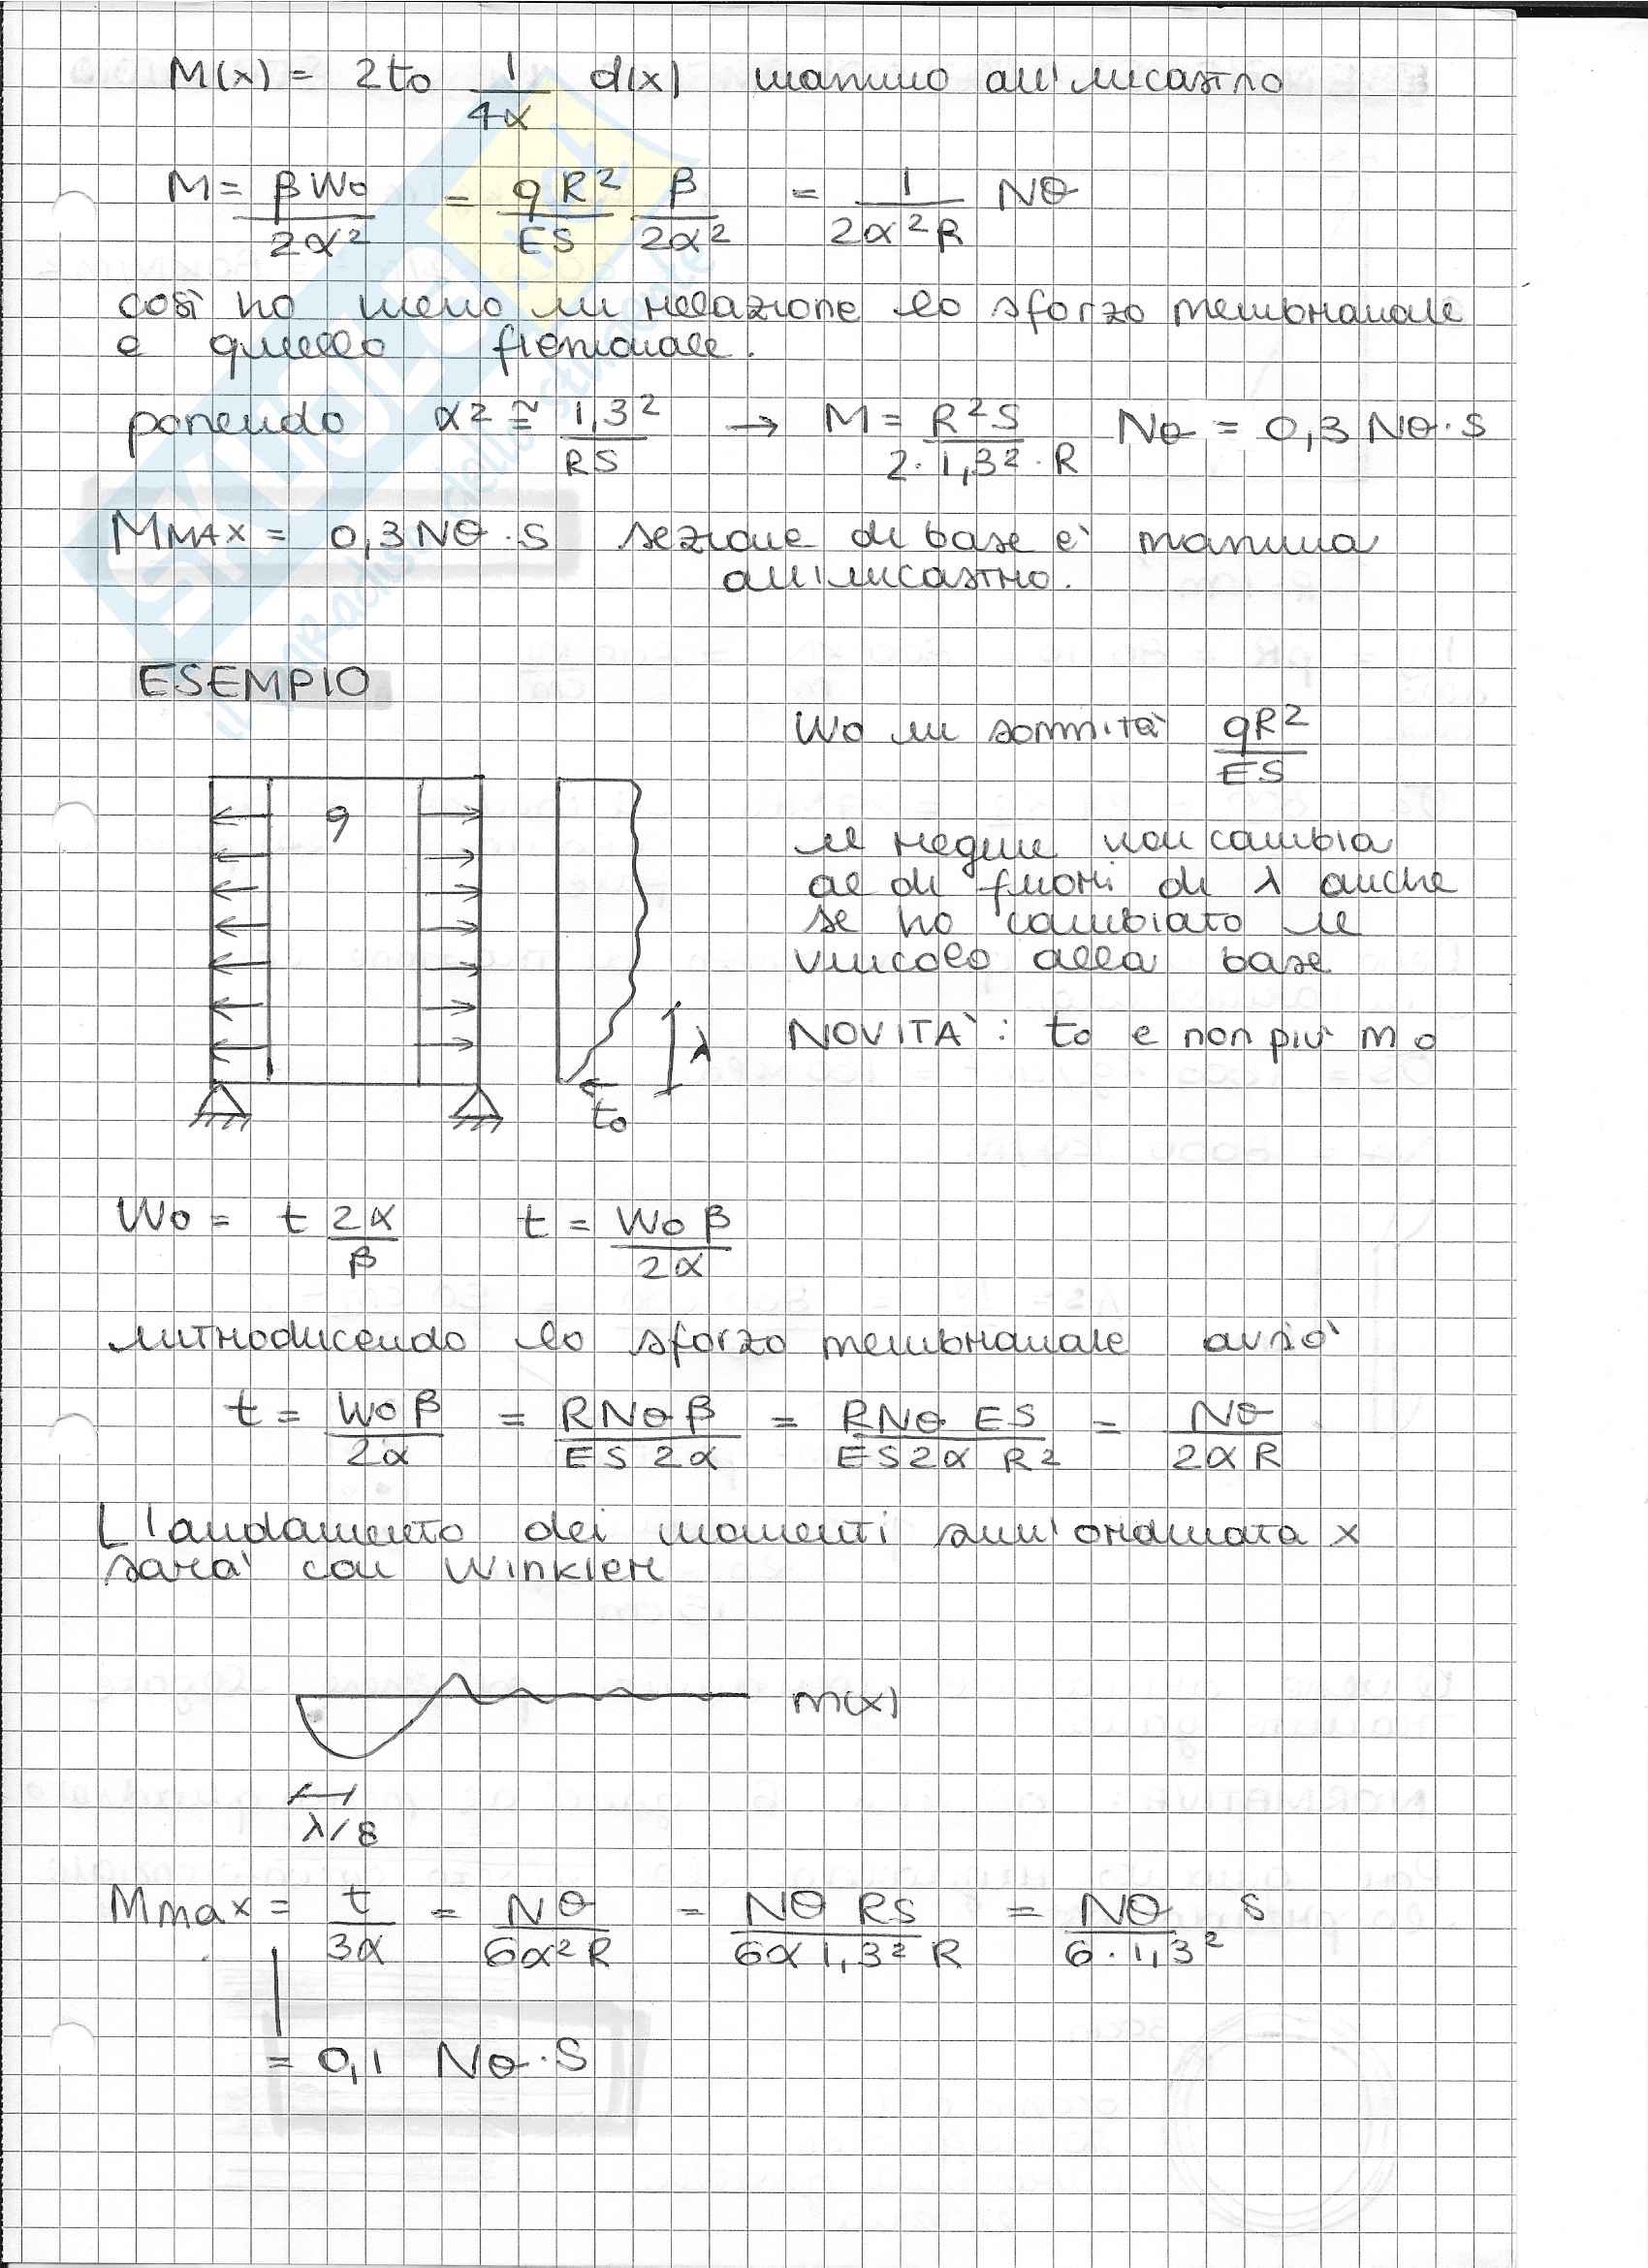 M(x) = 2to 1/4α d(x) massimo all'incastro
M = βWo/2α² = qR²/ES β/2α² = 1/2α²R Nθ
così ho messo in relazione lo sforzo membranale
e quello flessionale.
ponendo α² ≅ 1,3²/RS → M = R²S/2·1,3²·R Nθ = 0,3 Nθ·S
MMAX = 0,3 Nθ·S sezione di base e' massima
all'incastro.
ESEMPIO
Wo in sommità qR²/ES
q
il regime non cambia
al di fuori di λ anche
se ho cambiato il
vincolo alla base
NOVITA': to e non più mo
λ
to
Wo = t 2α/β t = Woβ/2α
introducendo lo sforzo membranale avrò
t = Woβ/2α = RNθβ/ES2α = RNθ ES/ES2α R² = Nθ/2αR
L'andamento dei momenti sull'ordinata x
sarà con Winkler
m(x)
λ/8
Mmax = t/3α = Nθ/6α²R = Nθ RS/6α 1,3² R = Nθ/6·1,3² S
= 0,1 Nθ·S